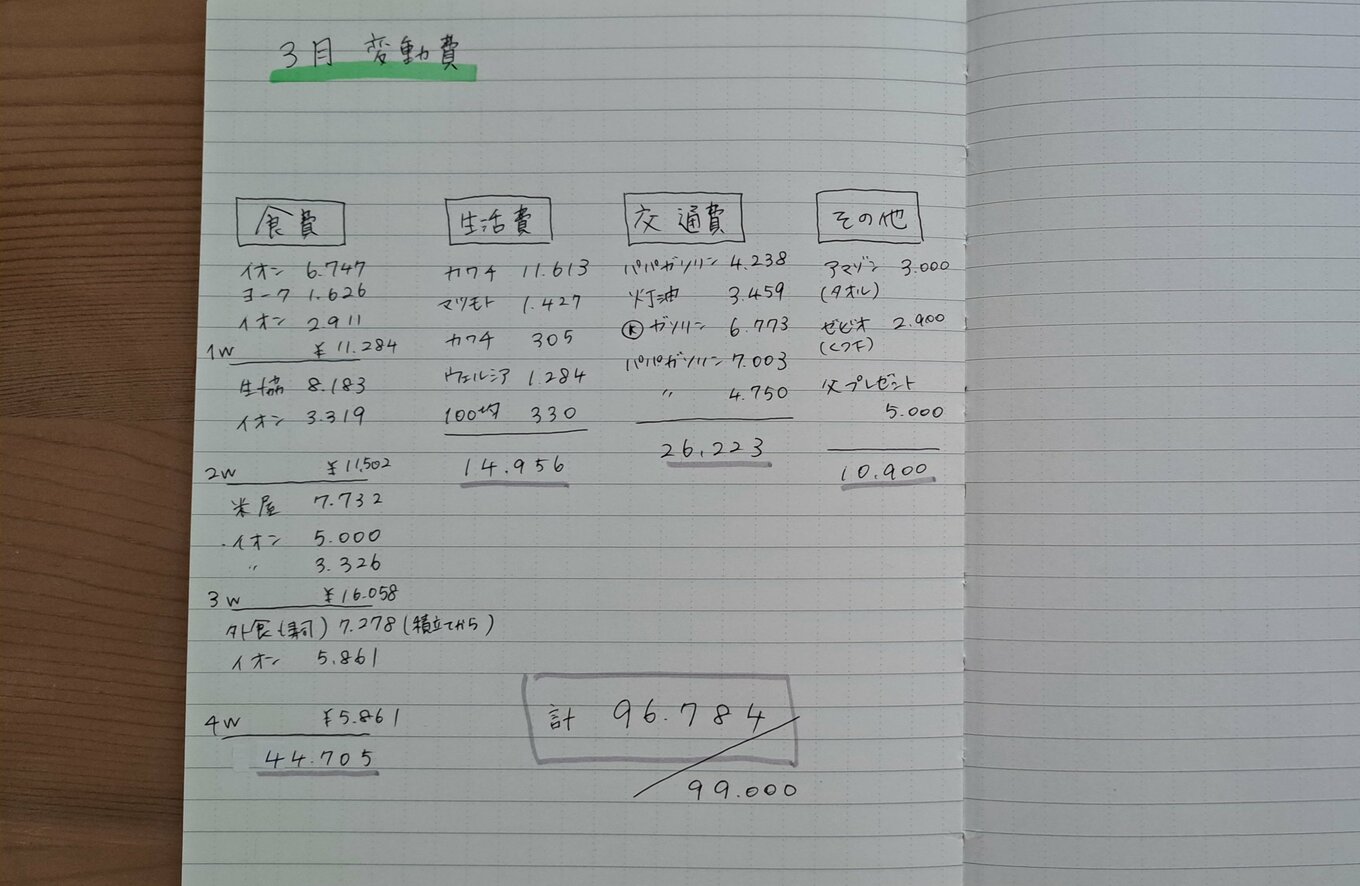 3月 変動費
食費
イオン 6.747
ヨーク 1.626
イオン 2911
1W ¥11.284
生協 8.183
イオン 3.319
2W ¥11,502
米屋 7.732
・イオン 5.000
〃 3.326
3W ¥16.058
外食(寿司) 7.278(積立てから)
イオン 5.861
4W ¥5.861
44.705
生活費
カワチ 11.613
マツモト 1.427
カワチ 305
ウェルシア 1.284
100均 330
14.956
交通費
パパガソリン 4.238
灯油 3.459
Ⓚガソリン 6.773
パパガソリン 7.003
〃 4.750
26.223
その他
アマゾン 3.000
(タオル)
ゼビオ 2.900
(くつ下)
父プレゼント
5.000
10.900
計 96.784
99.000